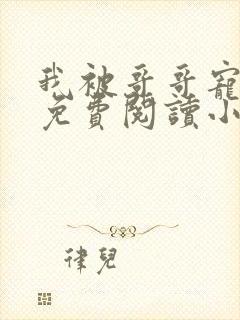 我被哥哥寵
免費閱讀小
律兒